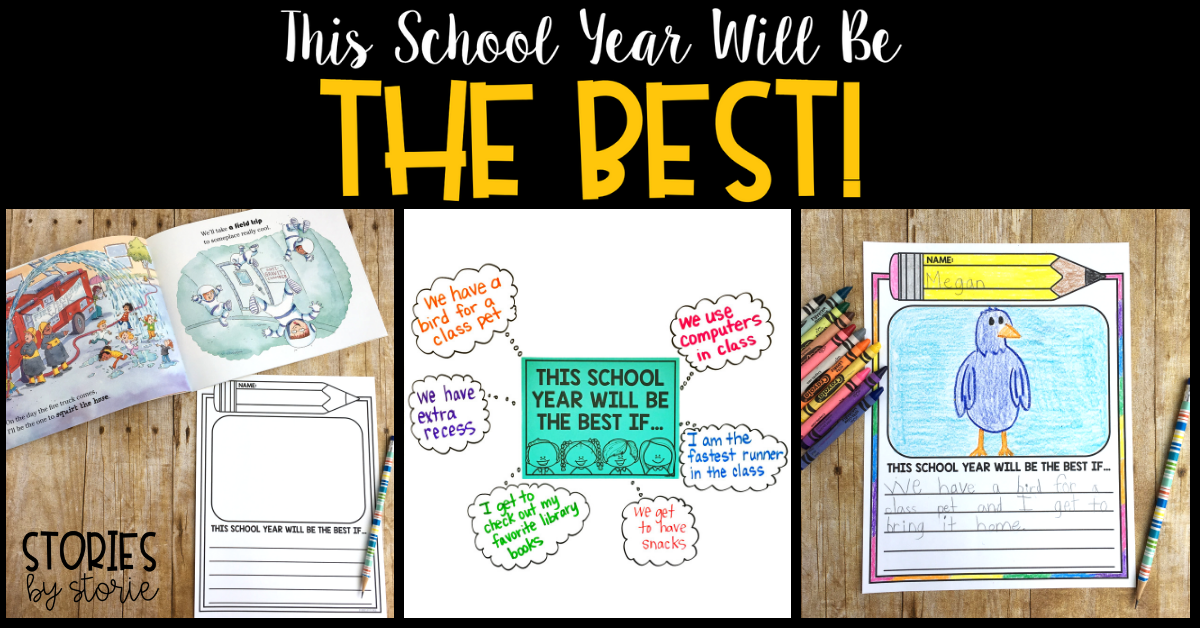 This School Year Will Be
THE BEST!
We'll take a field trip
to someplace really cool.
On the day the fire truck comes,
I'll be the one to squirt the hose.
NAME:
THIS SCHOOL YEAR WILL BE THE BEST IF...
STORIES
by storie
We have a
bird for a
class pet
We have
extra
recess
I get to
check out my
favorite library
books
We get
to have
snacks
I am the
fastest runner
in the class
We use
computers
in class
THIS SCHOOL
YEAR WILL BE
THE BEST IF...
NAME:
Megan
THIS SCHOOL YEAR WILL BE THE BEST IF...
We have a bird for a
class pet and I get to
bring it home.